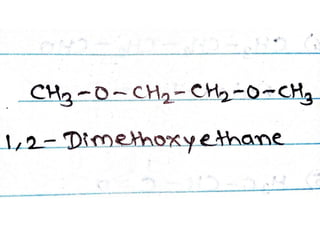 CH3-O-CH2-CH2-O-CH3
1,2-Dimethoxyethane